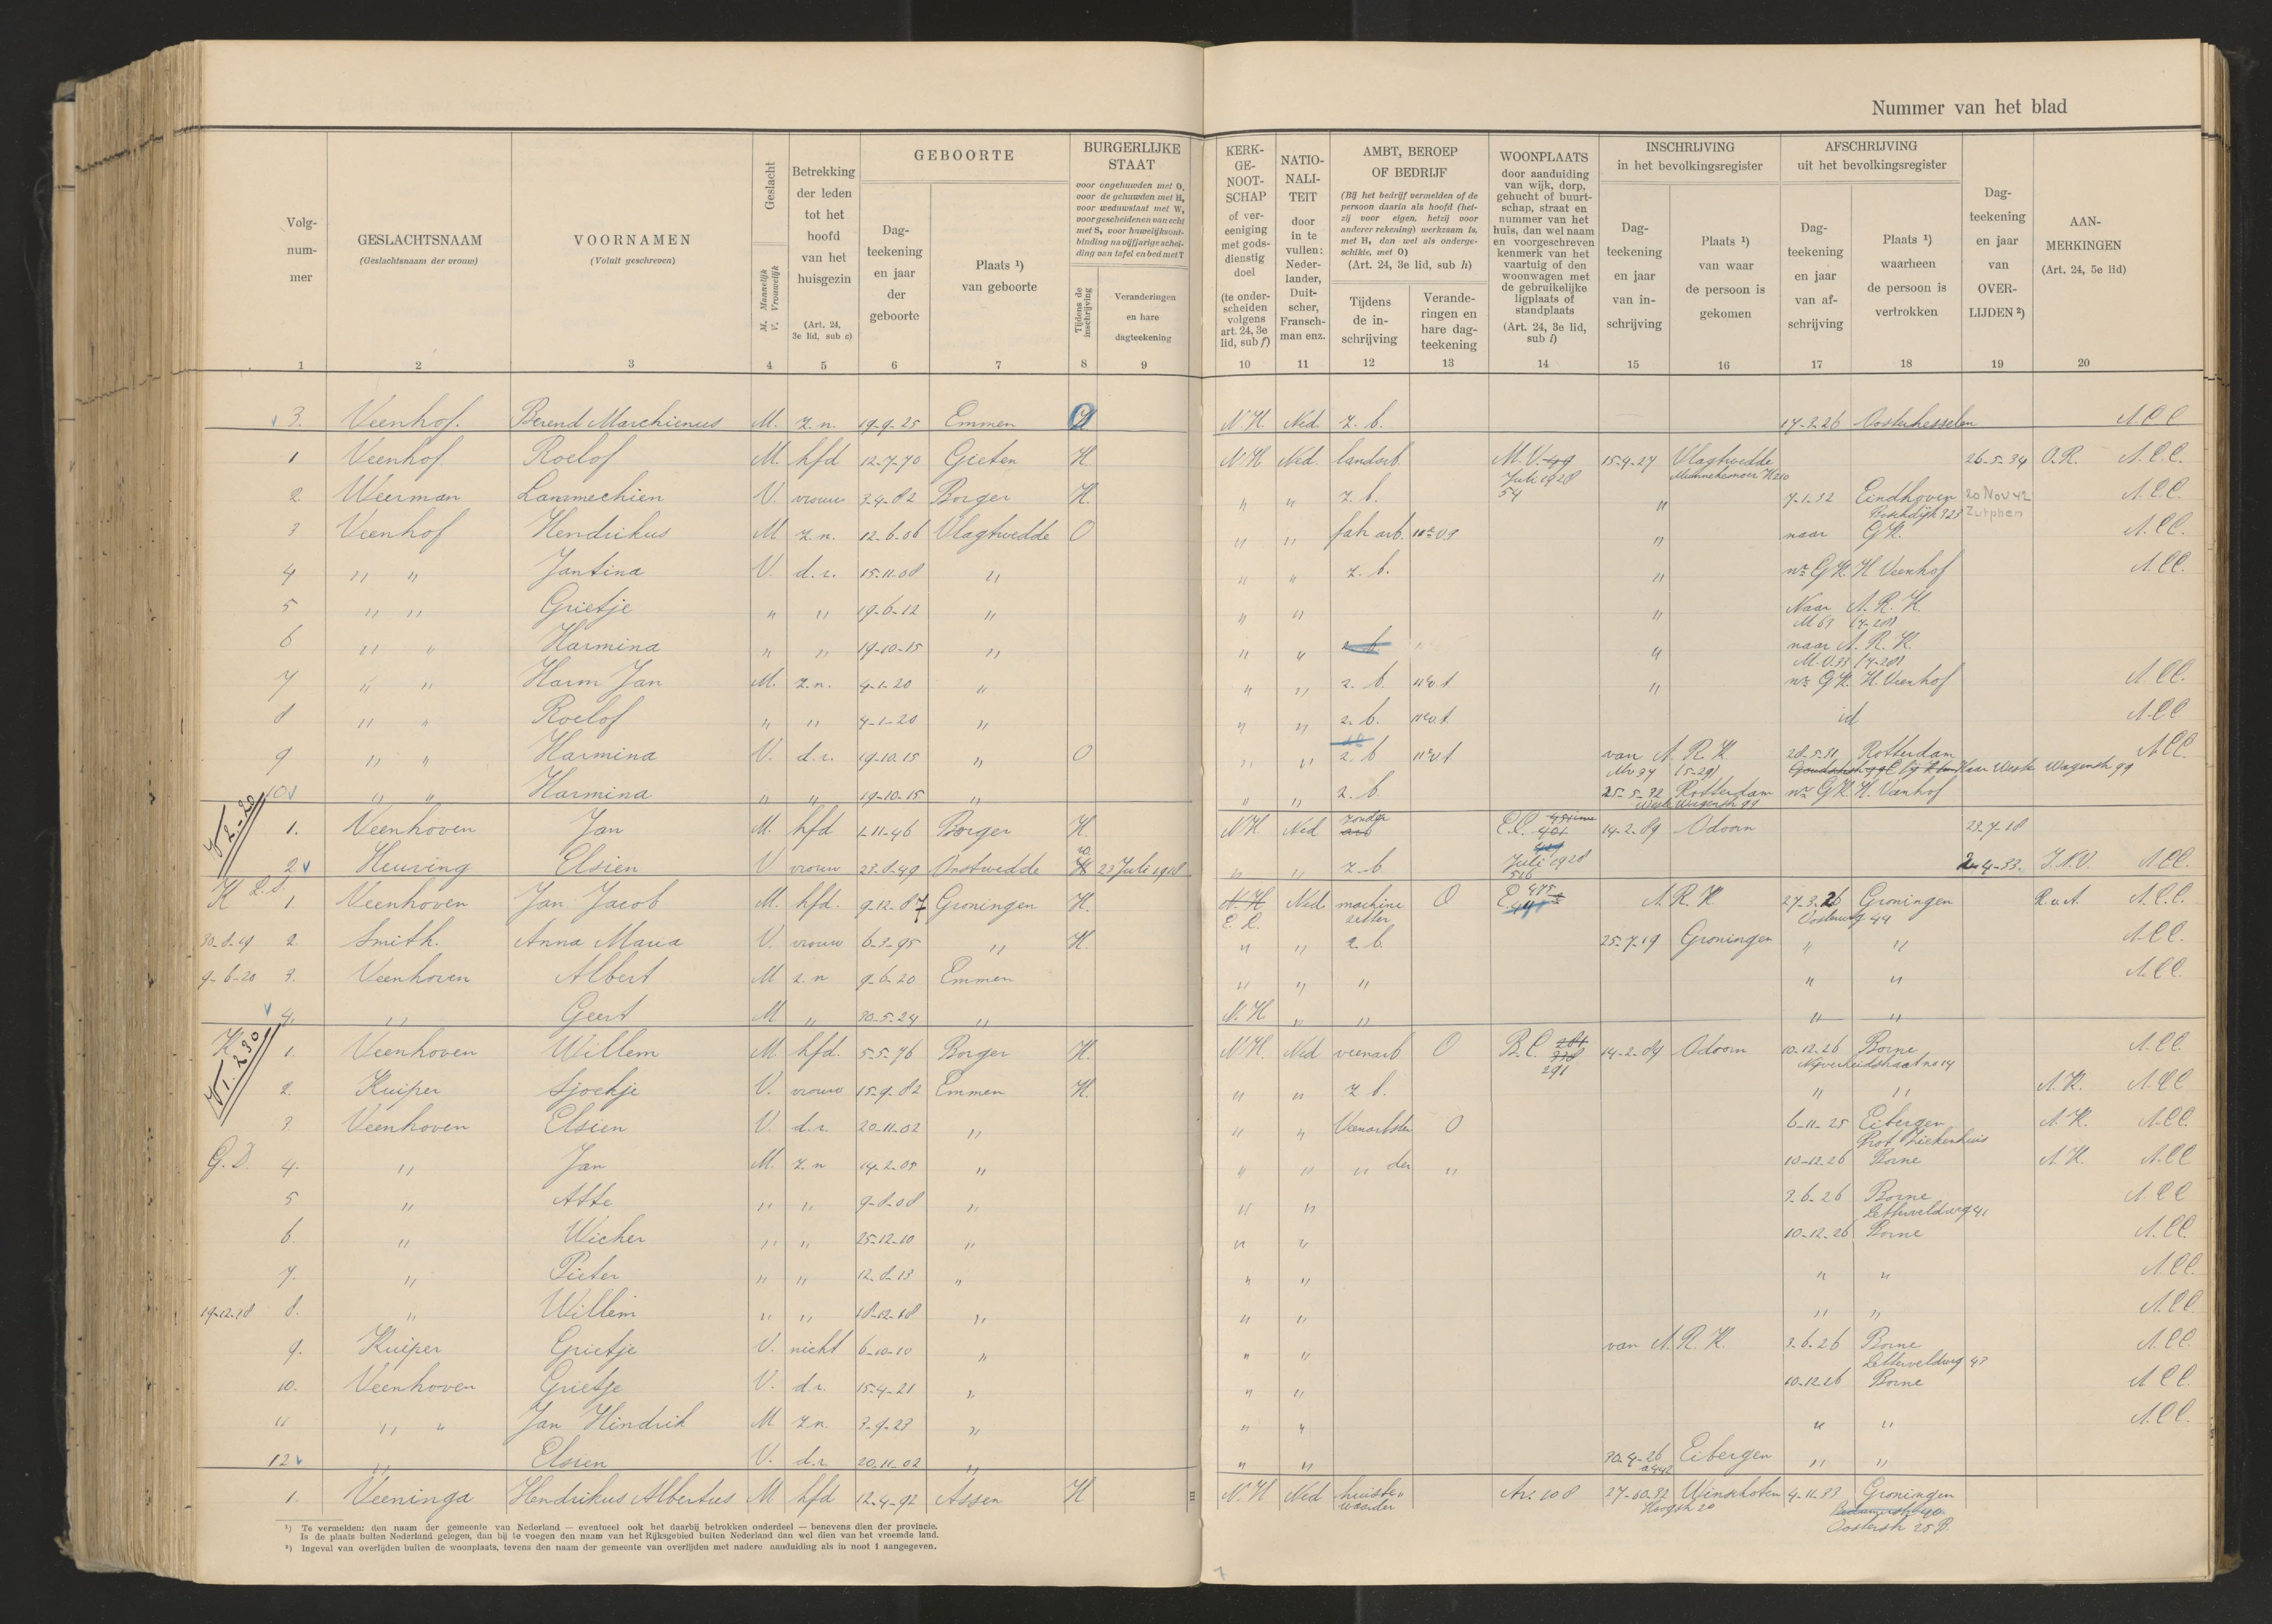 Nummer van het blad
Volg-
num-
mer
GESLACHTSNAAM
(Geslachtsnaam der vrouw)
VOORNAMEN
(Voluit geschreven)
Geslacht
M. Mannelijk
V. Vrouwelijk
Betrekking
der leden
tot het
hoofd
van het
huisgezin
(Art. 24,
3e lid, sub c)
GEBOORTE
Dag-
teekening
en jaar
der
geboorte
Plaats ¹)
van geboorte
BURGERLIJKE
STAAT
voor ongehuwden met O,
voor de gehuwden met H,
voor weduwstaat met W,
voor gescheidenen van echt
met S, voor huwelijksont-
binding na vijfjarige schei-
ding van tafel en bed met T
Tijdens de
inschrijving
Veranderingen
en hare
dagteekening
KERK-
GE-
NOOT-
SCHAP
of ver-
eeniging
met gods-
dienstig
doel
(te onder-
scheiden
volgens
art. 24, 3e
lid, sub f)
NATIO-
NALI-
TEIT
door
in te
vullen:
Neder-
lander,
Duit-
scher,
Fransch-
man enz.
AMBT, BEROEP
OF BEDRIJF
(Bij het bedrijf vermelden of de
persoon daarin als hoofd (het-
zij voor eigen, hetzij voor
anderer rekening) werkzaam is,
met H, dan wel als onderge-
schikte, met O)
(Art. 24, 3e lid, sub h)
Tijdens
de in-
schrijving
Verande-
ringen en
hare dag-
teekening
WOONPLAATS
door aanduiding
van wijk, dorp,
gehucht of buurt-
schap, straat en
nummer van het
huis, dan wel naam
en voorgeschreven
kenmerk van het
vaartuig of den
woonwagen met
de gebruikelijke
ligplaats of
standplaats
(Art. 24, 3e lid,
sub i)
INSCHRIJVING
in het bevolkingsregister
Dag-
teekening
en jaar
van in-
schrijving
Plaats ¹)
van waar
de persoon is
gekomen
AFSCHRIJVING
uit het bevolkingsregister
Dag-
teekening
en jaar
van af-
schrijving
Plaats ¹)
waarheen
de persoon is
vertrokken
Dag-
teekening
en jaar
van
OVER-
LIJDEN ²)
AAN-
MERKINGEN
(Art. 24, 5e lid)
1 2 3 4 5 6 7 8 9 10 11 12 13 14 15 16 17 18 19 20
3. Veenhof. Berend Marchienus M. z.n. 19-9-25 Emmen N.H. Ned. z.b. 17-2-26 Oosterhesselen A.C.C.
1 Veenhof Roelof M. hfd 12-7-70 Gieten H. N.H. Ned. landarb. M.V. 49 15-9-27 Vlagtwedde 26-5-34 O.R. A.C.C.
Juli 1928
54
2 Weerman Lammechien V. vrouw 3-4-82 Borger H. " " z.b. " 7-1-32 Eindhoven 20 Nov 42 A.C.C.
Boschdijk 323 Zutphen
3 Veenhof Hendrikus M z.n. 12-6-06 Vlagtwedde O " " fabr arb. " naar G.K. A.C.C.
4 " " Jantina V. d.r. 15-11-08 " " " z.b. " nr G.K. H Veenhof A.C.C.
5 " " Grietje " " 19-6-12 " " " " Naar A.R.K.
6 " " Harmina " " 19-10-15 " " " z.b. " naar A.R.K.
7 " " Harm Jan M. z.n. 4-1-20 " " " z.b. " nr G.K. H. Veenhof A.C.C.
8 " " Roelof " " 4-1-20 " " " z.b. id A.C.C.
9 " " Harmina V. d.r. 19-10-15 " O " " z.b van A.R.K. 28-5-31 Rotterdam A.C.C.
10 " " Harmina " " 19-10-15 " " " z.b. 25-5-32 Rotterdam nr G.K. H. Veenhof
1. Veenhoven Jan M. hfd 1-11-46 Borger H. N.H. Ned zonder E.C. 14-2-89 Odoorn 23-7-18
2 Heuving Elsien V. vrouw 23-8-49 Onstwedde H 23 Juli 1918 " " z.b Juli 1928 2-4-33. A.C.C.
516
K L.S. 1 Veenhoven Jan Jacob M. hfd. 9-12-87 Groningen H. N.H Ned machine O E 475 A.R.K. 27-3-26 Groningen R.v.A. A.C.C.
E.L. zetter Oosterweg 44
30-8-19 2 Smith. Anna Maria V. vrouw 6-3-95 " H. " " z.b. 25-7-19 Groningen " " A.C.C.
9-6-20 3. Veenhoven Albert M z.n 9-6-20 Emmen " " " " " A.C.C.
4. " Geert M " 30-5-24 " N.H. " " " "
K 1. Veenhoven Willem M hfd. 5-5-76 Borger H. N.H. Ned veenarb O B.C. 14-2-89 Odoorn 10-12-26 Borne A.C.C.
291 Nijverheidstraat no 14
2. Kuiper Sjoekje V. vrouw 15-9-82 Emmen H. " " z.b. " " N.H. A.C.C.
3 Veenhoven Elsien V. d.r. 20-11-02 " " " Veenarbster O 6-11-25 Eibergen N.H. A.C.C.
Prot Ziekenhuis
G.D. 4. " Jan M. z.n 14-2-05 " " " " der " 10-12-26 Borne N.H. A.C.C
5 " Atte " " 9-8-08 " " " 3-6-26 Borne A.C.C
6. " Wicher " " 25-12-10 " " " 10-12-26 Borne A.C.C.
7. " Pieter " " 12-8-13 " " " " " A.C.C.
19-12-18 8. " Willem " " 18-12-18 " " " " " A.C.C.
9. Kuiper Grietje V. nicht 6-10-10 " " " van A.R.K. 3-6-26 Borne A.C.C.
10. Veenhoven Grietje V. d.r. 15-4-21 " " " 10-12-26 Borne A.C.C.
11 " " Jan Hindrik M z.n. 3-9-23 " " " " " A.C.C.
12 " Elsien V. d.r 20-11-02 " " " 30-4-26 Eibergen " "
1. Veeninga Hendrikus Albertus M hfd 12-4-92 Assen H N.H Ned 27-10-32 Winschoten 4-11-33 Groningen
Hoogstr 20
Oosterstr 25 B.
¹) Te vermelden: den naam der gemeente van Nederland — eventueel ook het daarbij betrokken onderdeel — benevens dien der provincie.
Is de plaats buiten Nederland gelegen, dan bij te voegen den naam van het Rijksgebied buiten Nederland dan wel dien van het vreemde land.
²) Ingeval van overlijden buiten de woonplaats, tevens den naam der gemeente van overlijden met nadere aanduiding als in noot 1 aangegeven.